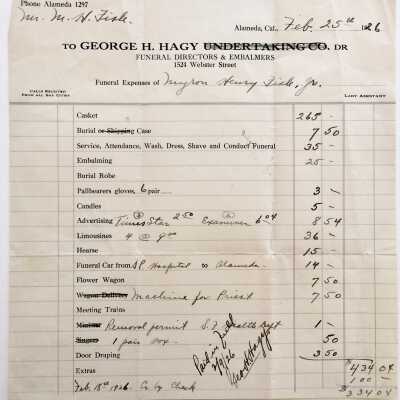 Phone Alameda 1297
Mr. M. H. Fisk. Alameda, Cal., Feb. 25th 1926
TO GEORGE H. HAGY UNDERTAKING CO. DR
FUNERAL DIRECTORS & EMBALMERS
1524 Webster Street
Funeral Expenses of Myron Henry Fisk, Jr.
CALLS RECEIVED
FROM ALL BAY CITIES
LADY ASSISTANT
Casket 265 -
Burial or Shipping Case 7 50
Service, Attendance, Wash, Dress, Shave and Conduct Funeral 35 -
Embalming 25 -
Burial Robe
Pallbearers gloves, 6 pair 3 -
Candles 5 -
Advertising Times Star 2 50 Examiner 6 04 8 54
Limousines 4 @ 9 00 36 -
Hearse 15 -
Funeral Car from S.P. Hospital to Alameda 14 -
Flower Wagon 7 50
Wagon Delivery Machine for Priest 7 50
Meeting Trains
Removal permit S.F. Health Dept 1 -
Singers 1 pair sox 50
Door Draping 3 50
Extras $434 04
Feb. 18th 1926. Cr by Check 100 -
$334 04
Paid in full
Geo. H. Hagy